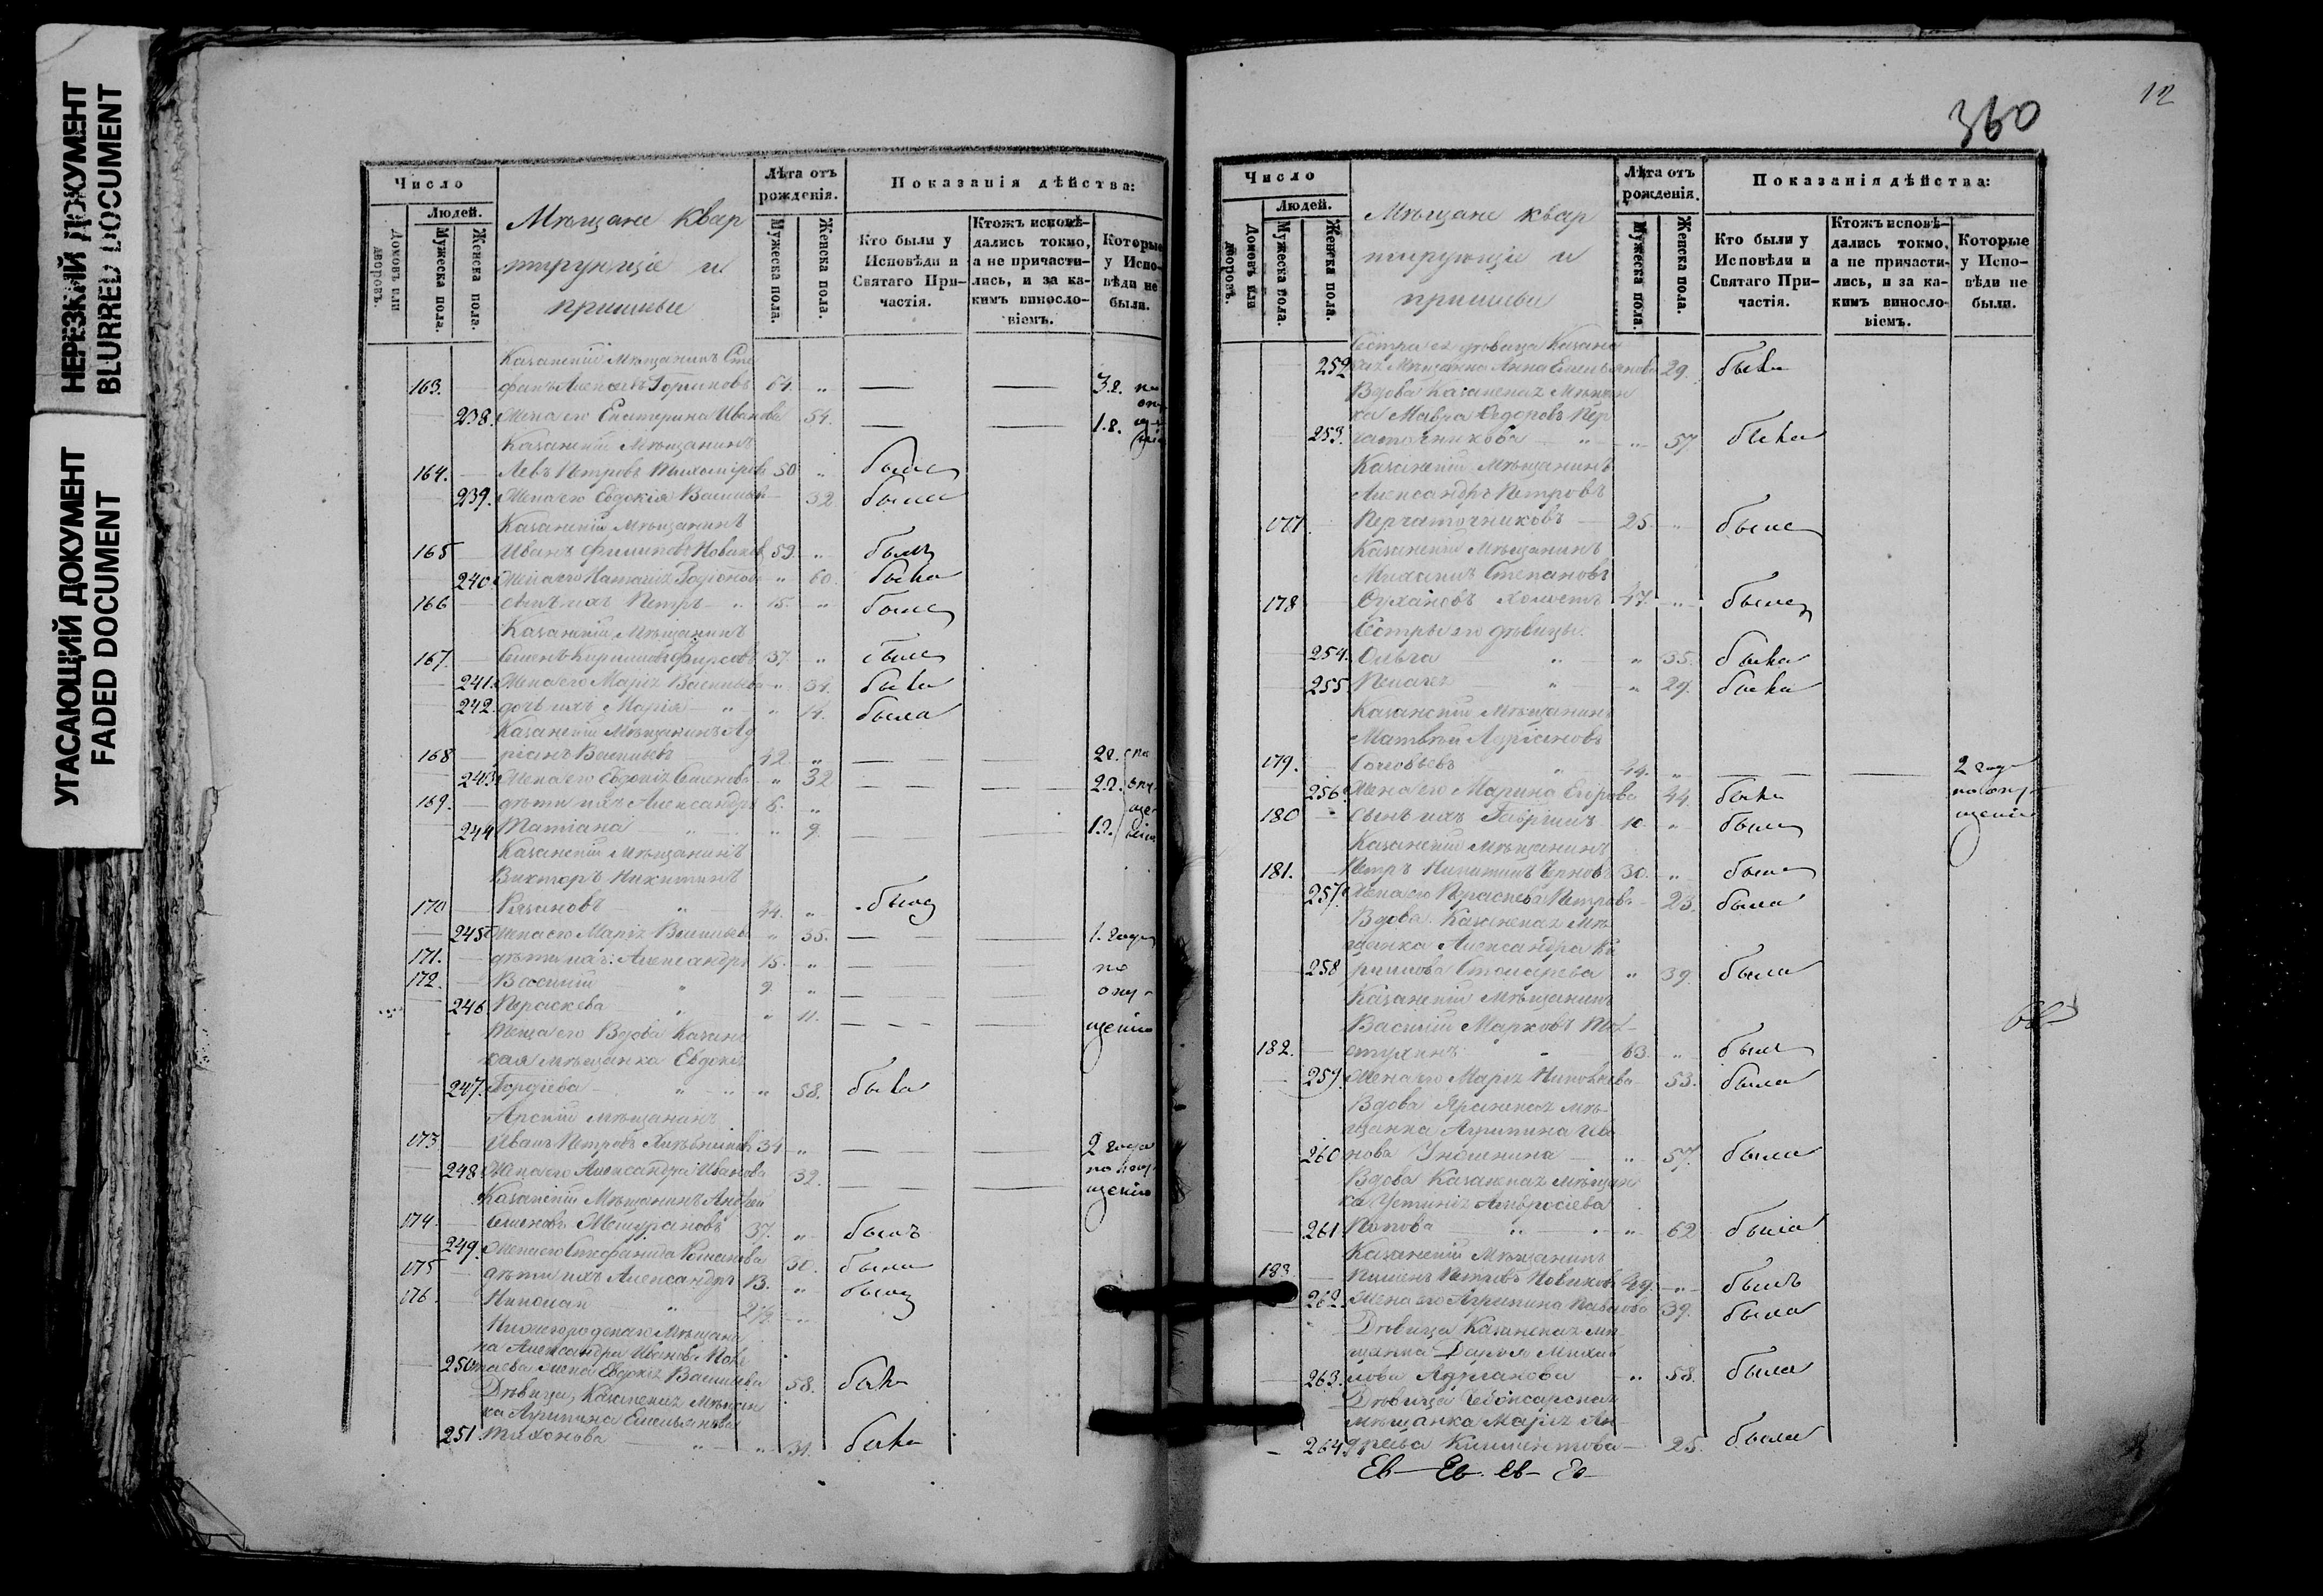 НЕРЕЗКИЙ ДОКУМЕНТ
BLURRED DOCUMENT
УГАСАЮЩИЙ ДОКУМЕНТ
FADED DOCUMENT
Число
Людей.
Домовъ или дворовъ.
Мужеска пола.
Женска пола.
Мѣщане квар
тирующіе и
пришлые
Лѣта отъ рожденія.
Мужеска пола.
Женска пола.
Показанія дѣйства:
Кто были у Исповѣди и Святаго Причастія.
Ктожъ исповѣдались токмо, а не причастились, и за какимъ винословіемъ.
Которые у Исповѣди не были.
Казанскій Мѣщанинъ Сте
163. фанъ 64. „ — — 3.г. по
238. Жена его Екатерина Иванова 54. — — 1.г.
Казанскій Мѣщанинъ
164. Левъ Петровъ Тихоміровъ 50 „ былъ
239. Жена его Евдокія Васильев 32 была
Казанскій Мѣщанинъ
165 Иванъ Филиповъ Новиковъ 59. „ былъ
240. Жена его Наталія Родіонова „ 60. была
166 сынъ ихъ Петръ „ 15. „ былъ
Казанскій Мѣщанинъ
167. Семенъ Кириловъ Фирсовъ 37. „ былъ
241. Жена его Марія Васильева „ 34. была
242. дочь ихъ Марія „ „ 14. была
Казанскій Мѣщанинъ Ад
168 ріанъ Васильевъ 42. „ — — 2г.
243. Жена его Евдокія Семенова „ 32 — — 2.г.
169. дѣти ихъ Александръ 6. „
244 Татіана „ „ 9. — — 1.г.
Казанскій Мѣщанинъ
Викторъ Никитинъ
170 Рязановъ „ 44. „ былъ
245 Жена его Марія Васильева „ 35. — — 1. годъ
171. дѣти ихъ: Александръ 15. „ — — по
172. Василій „ 9. „ — — опу-
246. Параскева „ „ 11. — — щенію
Теща его Вдова Казанс
кая мѣщанка Евдокія
247. Гордіева „ „ „ 58. была
Арскій мѣщанинъ
173 Иванъ Петровъ Хлѣбниковъ 34 „ — — 2 года
248 Жена его Александра Иванова 32. — — по опу-
щенію
Казанскій Мѣщанинъ Андрей
174. Семеновъ 37. „ былъ
249. Жена его Стефанида Романова 30. была
175 дѣти ихъ Александръ 13. „ былъ
176. Николай „ 2½ „
Нижегородскаго Мѣщани
на Александра Иванова
250 жена Евдокія Васильева 58. была
Дѣвица, Казанская Мѣщан
ка Агрипина Емельянова
251. Тихонова „ „ 31. была
360
12
Число
Людей.
Домовъ или дворовъ.
Мужеска пола.
Женска пола.
Мѣщане квар
тирующіе и
пришлые
Лѣта отъ рожденія.
Мужеска пола.
Женска пола.
Показанія дѣйства:
Кто были у Исповѣди и Святаго Причастія.
Ктожъ исповѣдались токмо, а не причастились, и за какимъ винословіемъ.
Которые у Исповѣди не были.
Сестра ея дѣвица Казанс
252 кая Мѣщанка Анна Емельянова 29. была
Вдова Казанская Мѣщан
ка Мавра Ѳедоровъ Пер
253. чаточникова „ „ 57 была
Казанскій Мѣщанинъ
Александръ Петровъ
177 Перчаточниковъ 25. „ былъ
Казанскій Мѣщанинъ
Михаилъ Степановъ
178 Сухановъ холостъ 47. „ былъ
Сестры его дѣвицы.
254. Ольга „ „ 35. была
255 Пелагея „ „ 29. была
Казанскій Мѣщанинъ
Матвѣй Адріановъ
179. Соловьевъ „ 44. „ — — 2 года
256. Жена его Марина Егорова 44. была по опу-
180 сынъ ихъ Гавріилъ 10. „ былъ щенію
Казанскій Мѣщанинъ
181. Петръ Никитинъ 30. „ былъ
257. Жена его Параскева Петрова 23. была
Вдова Казанская Мѣ-
щанка Александра Ки
258 рилова Столярева „ 39. была
Казанскій Мѣщанинъ
Василій Марковъ
182. 63. „ былъ
259. Жена его Марія Николаева 53. была
Вдова Яранская мѣ-
щанка Агрипина Ива
260 нова „ 57. была
Вдова Казанская Мѣщан
ка Устинія Амвросіева
261 Попова „ „ 62 была
Казанскій Мѣщанинъ
183 Пименъ Петровъ Новиковъ 49. „ былъ
262. Жена его Агрипина Павлова 39. была
Дѣвица Казанская мѣ-
щанка Дарья Михай
263. лова Адріанова „ 58. была
Дѣвица Чебоксарская
мѣщанка Марія Ан-
264 дреева Климентова 25. была